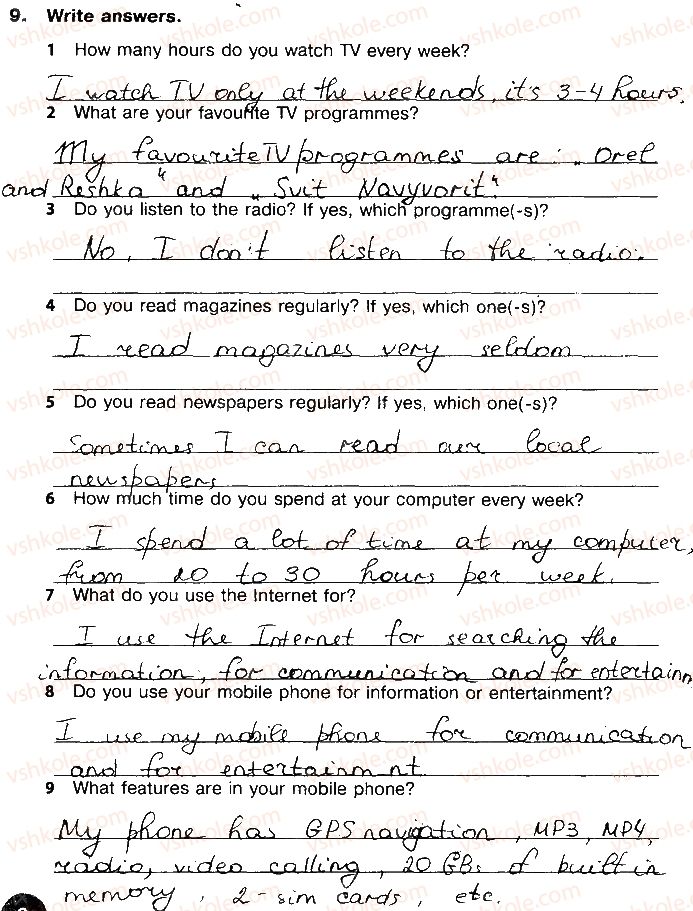 9. Write answers.
1 How many hours do you watch TV every week?
I watch TV only at the weekends, it's 3-4 hours.
2 What are your favourite TV programmes?
My favourite TV programmes are : „ Orel
and Reshka “ and „ Svit Navyvorit“.
3 Do you listen to the radio? If yes, which programme(-s)?
No, I don't listen to the radio.
4 Do you read magazines regularly? If yes, which one(-s)?
I read magazines very seldom
5 Do you read newspapers regularly? If yes, which one(-s)?
Sometimes I can read our local
newspapers
6 How much time do you spend at your computer every week?
I spend a lot of time at my computer,
from 20 to 30 hours per week.
7 What do you use the Internet for?
I use the Internet for searching the
information, for communication and for entertainn
8 Do you use your mobile phone for information or entertainment?
I use my mobile phone for communication
and for entertainm nt
9 What features are in your mobile phone?
My phone has GPS navigation, MP3, MP4,
radio, video calling, 20 GBs of built in
memory, 2 - sim cards, etc.
vshkole.com